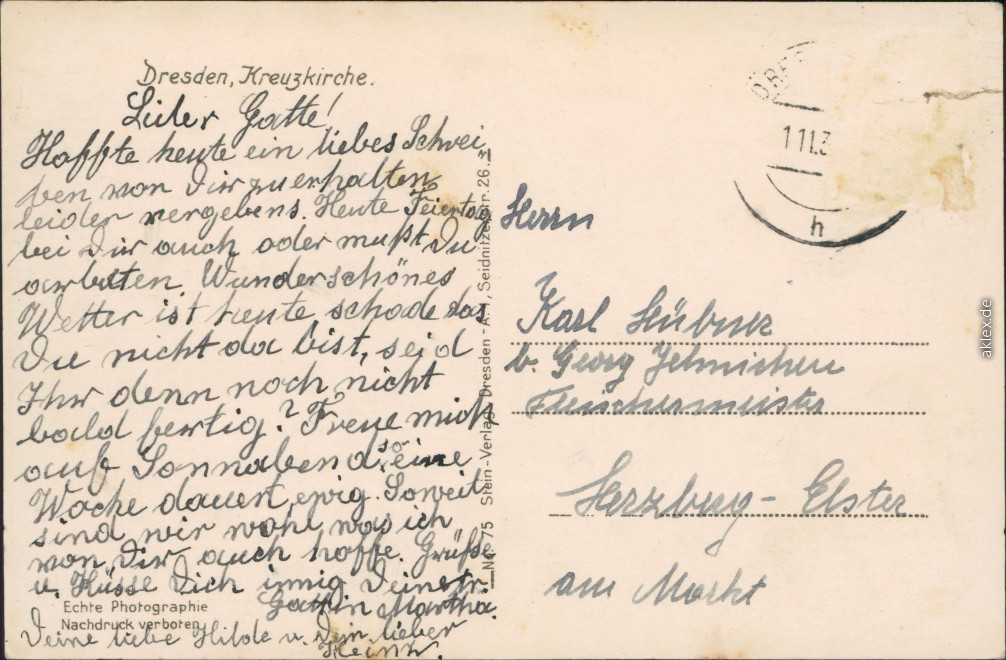 Dresden, Kreuzkirche.
Lieber Gatte!
Hoffte heute ein liebes Schrei
ben von Dir zu erhalten
leider vergebens. Heute Feiertag
bei Dir auch oder mußt Du
arbeiten. Wunderschönes
Wetter ist heute schade das
Du nicht da bist, seid
Ihr denn noch nicht
bald fertig? Freue mich
auf Sonnabend, so eine
Woche dauert ewig. Soweit
sind wir wohl was ich
von Dir auch hoffe. Grüße
u. Küsse Dich innig Deine tr.
Gattin Martha.
Deine liebe Hilde u. Dein lieber
Heinz.
Echte Photographie
Nachdruck verboten
No. 75 Stein-Verlag, Dresden-A., Seidnitzer Str. 26.
DRE
1 11.3
h
Herrn
Karl Hübner
b. Georg Jehnichen
Fleischermeister
Herzburg-Elster
am Markt
aklex.de